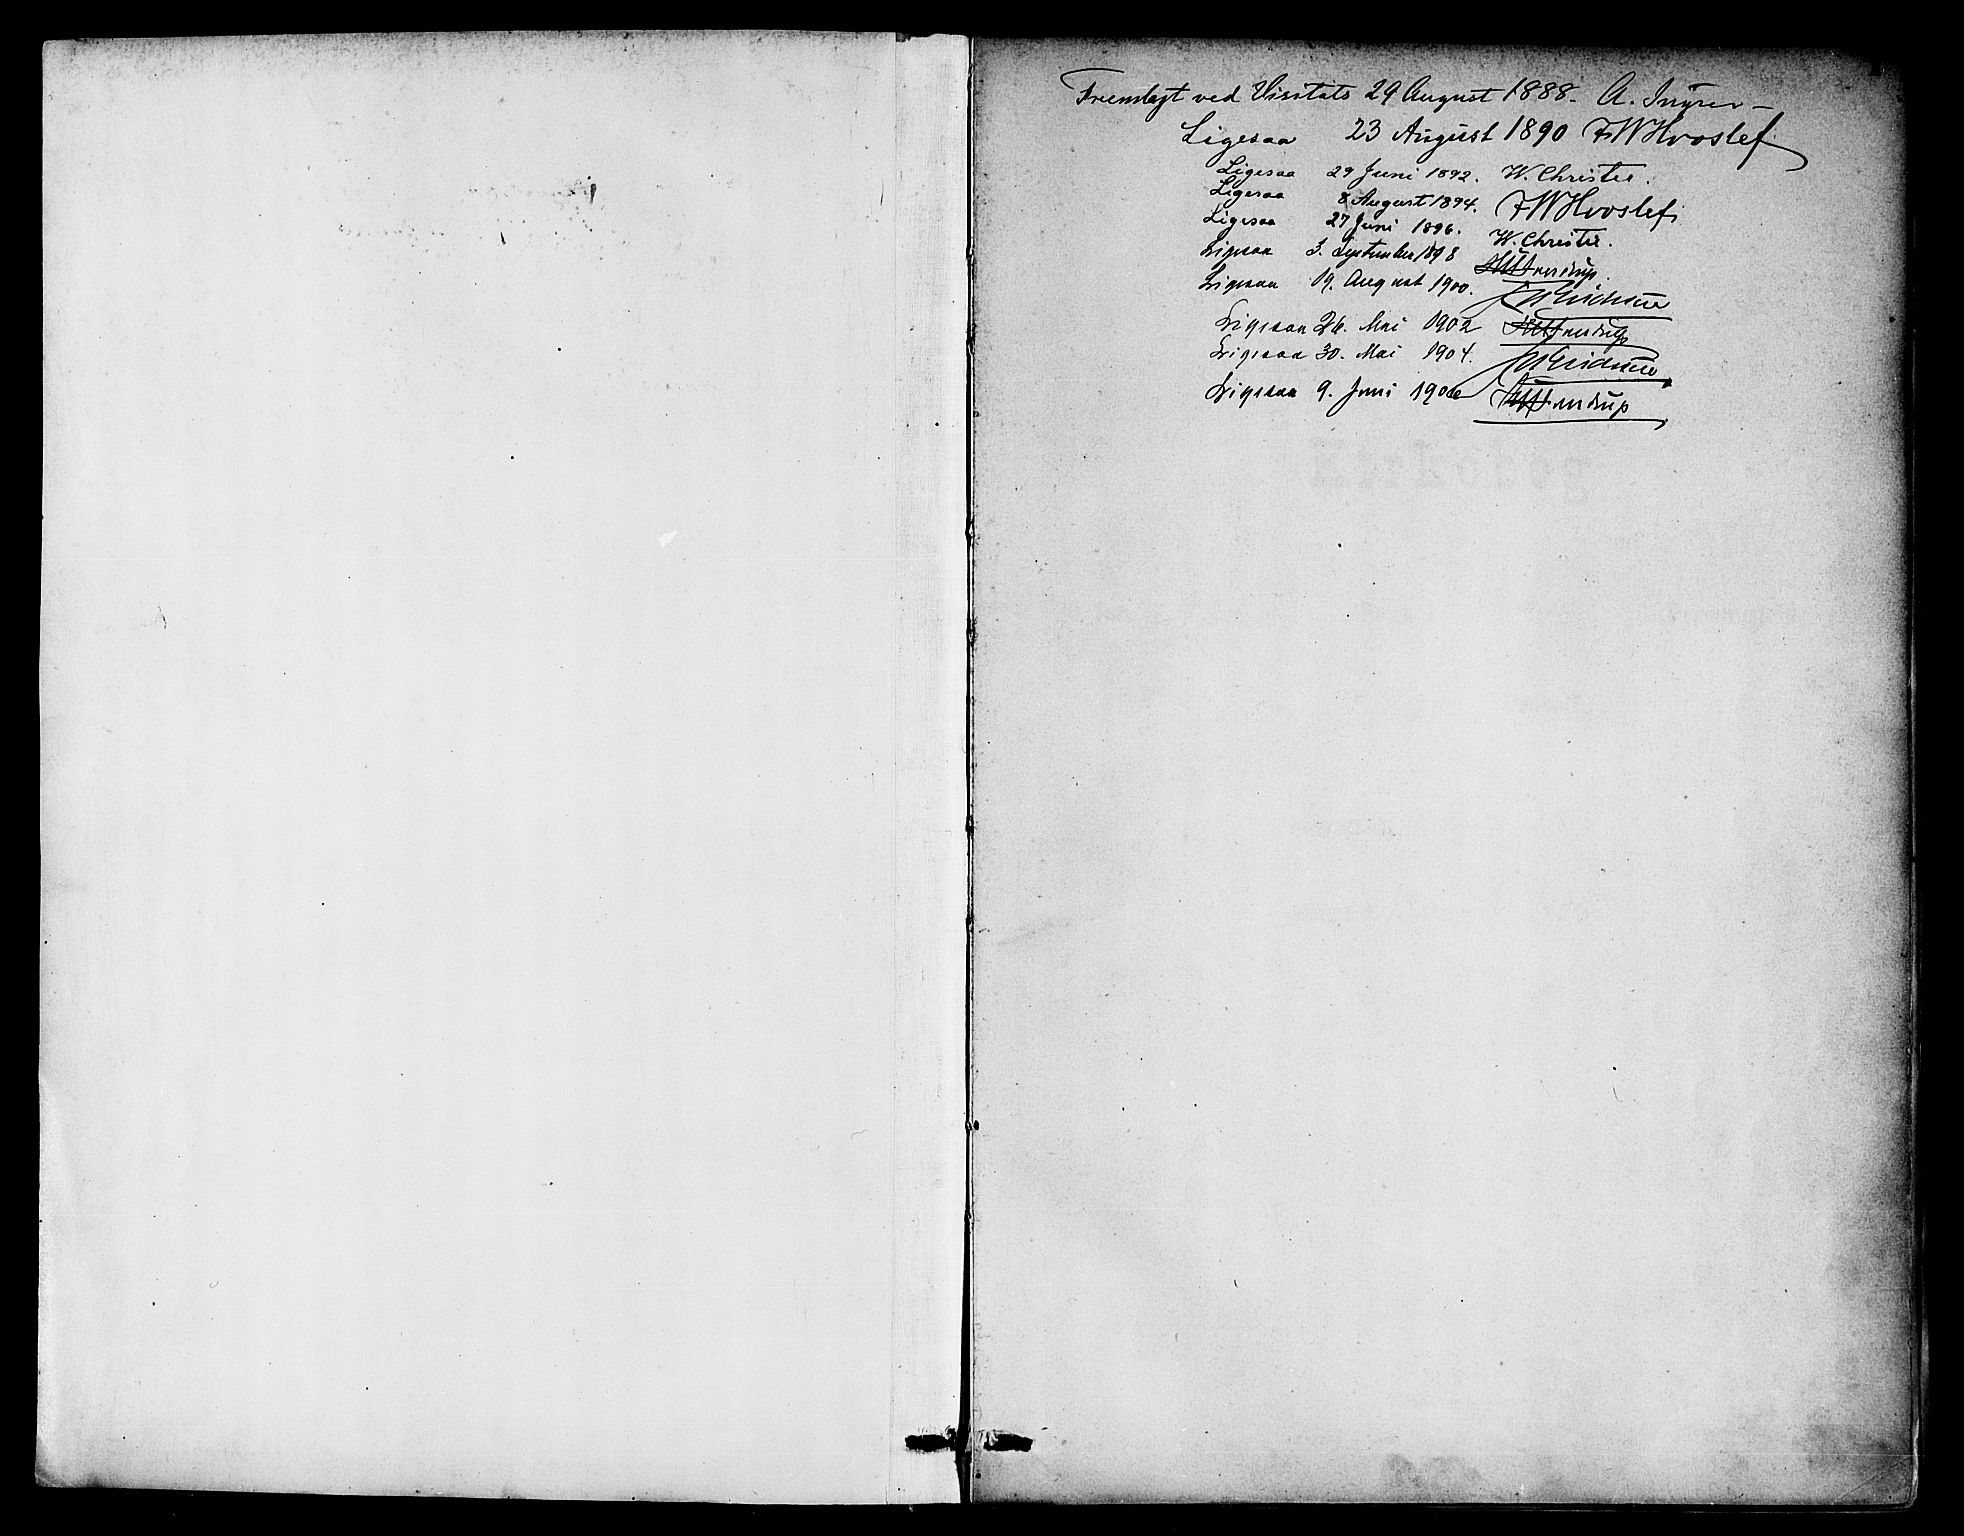 Fremlagt ved Visitats 29 August 1888. A.
Ligesaa 23 August 1890 FWHvoslef
Ligesaa 29 Juni 1892. W. Christie.
Ligesaa 8 August 1894. FWHvoslef
Ligesaa 27 Juni 1896. W. Christie.
Ligesaa 3. September 1898
Ligesaa 19. August 1900.
Ligesaa 26. Mai 1902
Ligesaa 30. Mai 1904.
Ligesaa 9. Juni 1906